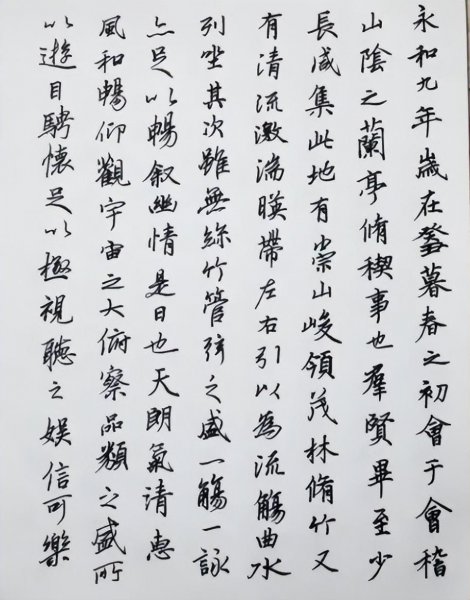 永和九年歲在癸丑暮春之初會于會稽
山陰之蘭亭脩稧事也羣賢畢至少
長咸集此地有崇山峻領茂林脩竹又
有清流激湍暎帶左右引以為流觴曲水
列坐其次雖無絲竹管弦之盛一觴一詠
亦足以暢叙幽情是日也天朗氣清惠
風和暢仰觀宇宙之大俯察品類之盛所
以遊目騁懷足以極視聽之娛信可樂